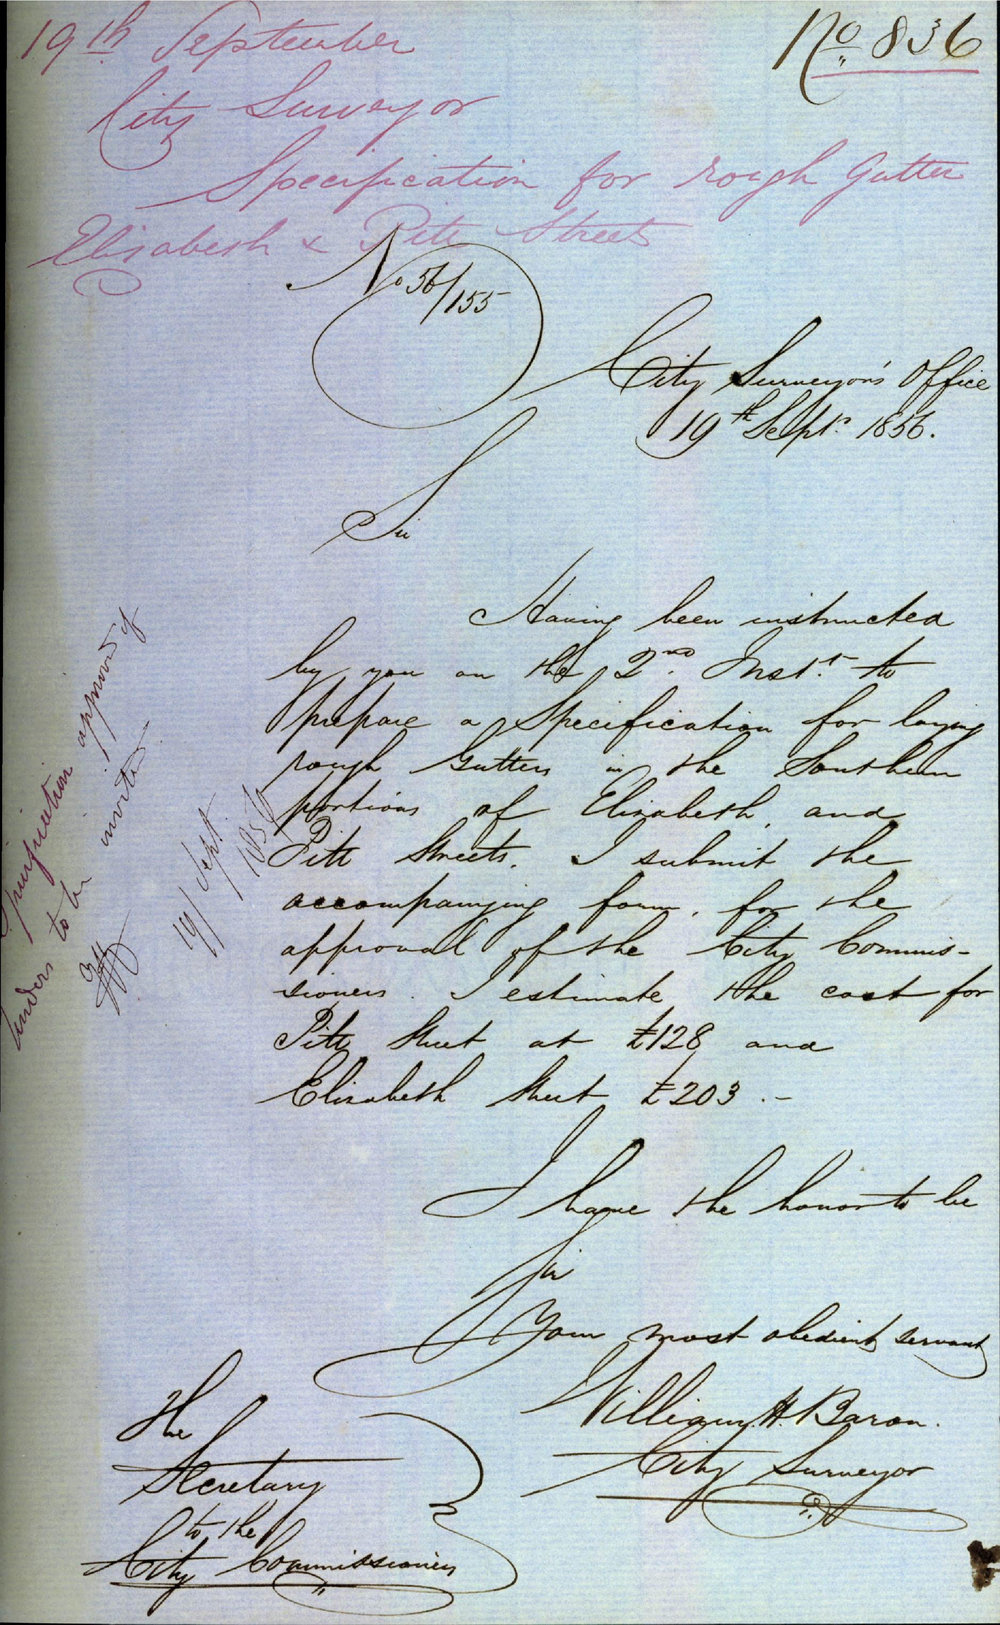 19th September
No 836
City Surveyor
Specification for rough Gutter
Elizabeth & Pitt Streets
No 56/155
City Surveyor's Office
19th Sept. 1856.
Sir
Having been instructed
by you on the 2nd Inst. to
prepare a Specification for laying
rough Gutters in the Southern
portions of Elizabeth, and
Pitt Streets. I submit the
accompanying form, for the
approval of the City Commis-
sioners. I estimate the cost for
Pitt Street at £128 and
Elizabeth Street £203.-
I have the honor to be
Sir
Your most obedient servant
William H. Baron.
City Surveyor
The
Secretary
to the
City Commissioners
Specification approved of
Tenders to be invited
19/ Sept.
/1856